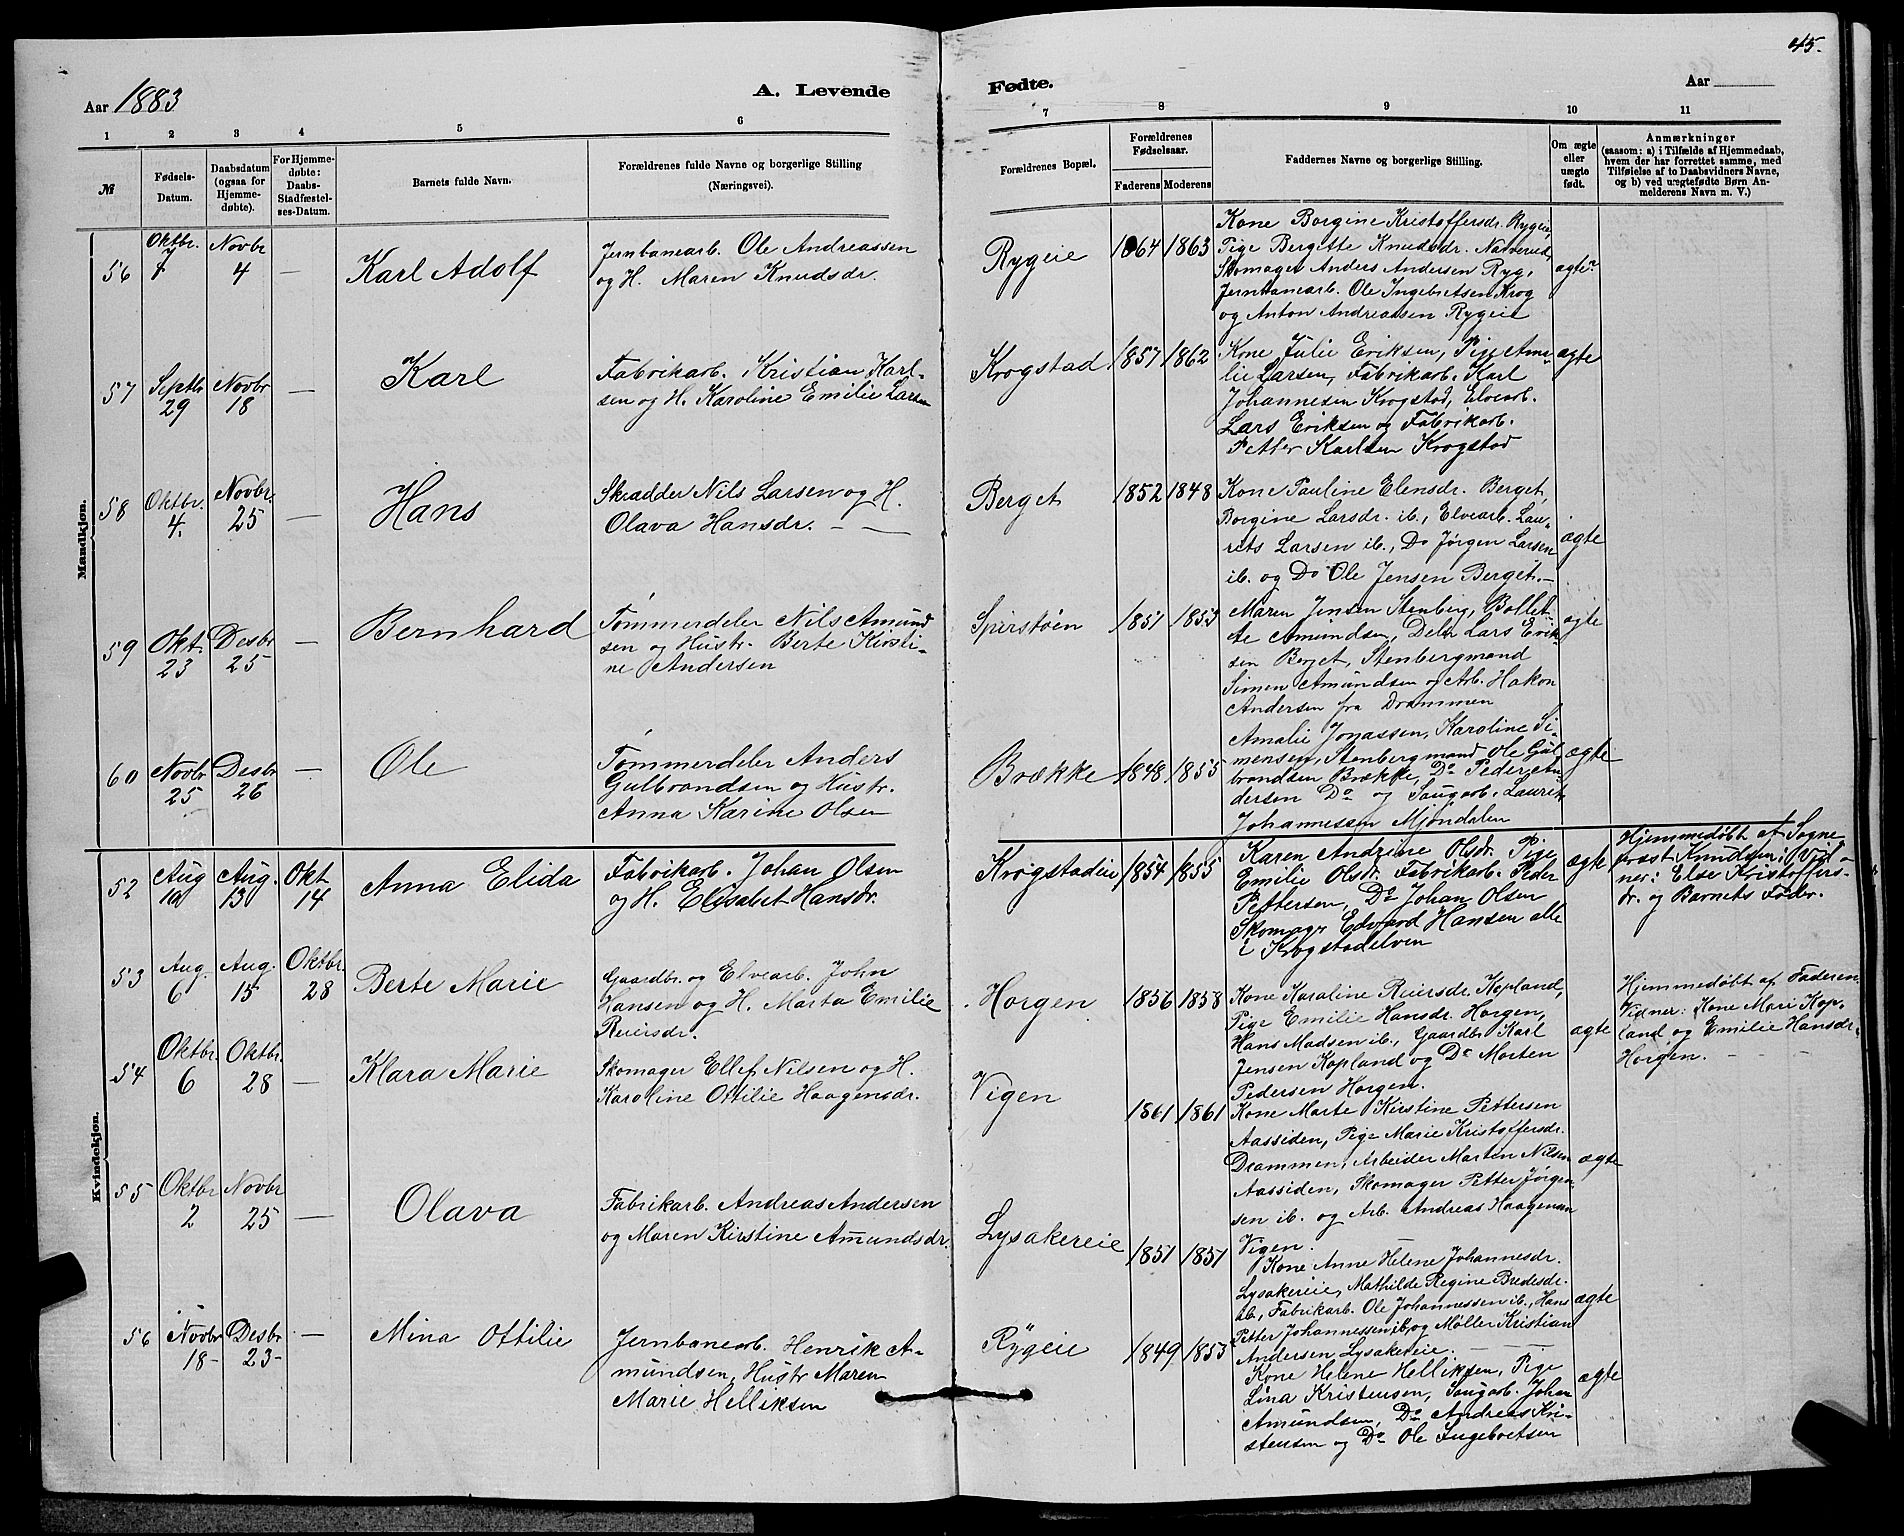 45.
Aar 1883
A. Levende
Fødte.
Aar
1 2 3 4 5 6 7 8 9 10 11
№
Fødsels-Datum.
Daabsdatum (ogsaa for Hjemmedøbte).
For Hjemmedøbte: Daabs-Stadfæstelses-Datum.
Barnets fulde Navn.
Forældrenes fulde Navne og borgerlige Stilling
(Næringsvei).
Forældrenes Bopæl.
Forældrenes Fødselsaar.
Faderens Moderens
Faddernes Navne og borgerlige Stilling.
Om ægte eller uægte født.
Anmærkninger
(saasom: a) i Tilfælde af Hjemmedaab,
hvem der har forrettet samme, med
Tilføielse af to Daabsvidners Navne,
og b) ved uægtefødte Børn Anmelderens Navn m. V.)
Mandkjøn.
56 Oktbr. 7 Novbr 4 — Karl Adolf
Jernbanearb. Ole Andreassen
og H. Maren Knudsdr.
Rygeie 1864 1863
Kone Borgine Kristoffersdr. Rygeie
Pige Bergitte Knudsdr. Narverud,
Skomager Anders Andersen Ryg,
Jernbanearb. Ole Ingebretsen Krog
og Anton Andreassen Rygeie
ægte
57 Septbr 29 Novbr 18 — Karl
Fabrikarb. Kristian Karl-
sen og H. Karoline Emilie Larsen
Krogstad 1857 1862
Kone Julie Eriksen, Pige Ama-
lie Larsen, Fabrikarb. Karl
Johannesen Krogstad, Elvearb.
Lars Eriksen og Fabrikarb.
Petter Karlsen Krogstad
ægte
58 Oktbr. 4. Novbr. 25 — Hans
Skrædder Nils Larsen og H.
Olava Hansdr. —
Berget 1852 1848
Kone Pauline Elensdr. Berget,
Borgine Larsdr. ib., Elvearb. Lau-
rets Larsen ib., Do Jørgen Larsen
ib. og Do Ole Jensen Berget. —
ægte
59 Okt. 23 Desbr 25 — Bernhard
Tømmerdeler Nils Amund
sen og Hustr. Berte Kirsti-
ne Andersen
Spirstøen 1851 1853
Maren Jensen Stenberg, Bollet-
te Amundsen, Deler Lars Erik-
sen Berget, Stenbergmand
Simen Amundsen og Arb. Hakon
Andersen fra Drammen
ægte
60 Novbr 25 Desbr 26 — Ole
Tømmerdeler Anders
Gulbrandsen og Hustr.
Anna Karine Olsen
Brække 1848 1855
Amalie Jonassen, Karoline Si-
mensen, Stenbergmand Ole Gul
brandsen Brække, Do Peder An
dersen Do og Saugarb. Laurits
Johannesen Mjøndalen
ægte
Kvindekjøn.
52 Aug 10 Aug. 13 Okt. 14 Anna Elida
Fabrikarb. Johan Olsen
og H. Elisabet Hansdr.
Krogstadeie 1854 1855
Karen Andrine Olsdr. Pige
Emilie Olsdr. Fabrikarb. Peder
Pettersen, Do Johan Olsen
Skomagr Edvard Hansen alle
i Krogstadelven
ægte
Hjemmedøbt af Sogne
præst Knudsen; Vid-
ner: Else Kristoffers-
dr. og Barnets Fader.
53 Aug. 6 Aug. 15 Oktbr. 28 Berte Marie
Gaardbr. og Elvearb. John
Hansen og H. Marta Emilie
Reiersdr.
Horgen 1856 1858
Kone Karoline Reiersdr. Kopland,
Pige Emilie Hansdr. Horgen,
Hans Madsen ib., Gaardbr. Karl
Jensen Kopland og Do Morten
Pedersen Horgen.
ægte
Hjemmedøbt af Faderen.
Vidner: Kone Mari Kop-
land og Emilie Hansdr.
Horgen. — — —
54 Oktbr. 6 Oktbr. 28 — Klara Marie
Skomager Ellef Nilsen og H.
Karoline Ottilie Haagensdr.
Vigen 1861 1861
Kone Marte Kirstine Pettersen
Aassiden, Pige Marie Kristoffersdr.
Drammen, Arbeider Martin Nilsen
Aassiden, Skomager Petter Jørgen
sen ib. og Arb. Andreas Haagensen
Vigen.
ægte
55 Oktbr 2 Novbr 25 — Olava
Fabrikarb. Andreas Andersen
og Maren Kirstine Amundsdr.
Lysakereie 1851 1851
Kone Anne Helene Johannesdr.
Lysakereie, Mathilde Regine Bredesdr.
ib., Fabrikarb. Ole Johannessen ib., Hans
Petter Johannessen ib. og Møller Kristian
Andersen Lysakereie. —
ægte
56 Novbr 18 Desbr 23 — Mina Ottilie
Jernbanearb. Henrik A-
mundsen, Hustr Maren
Marie Helliksen
Rygeie 1849 1853
Kone Helene Helliksen, Pige
Lina Kristensen, Saugarb. Johan
Amundsen, Do Andreas Kri-
stensen og Do Ole Ingebretsen
ægte